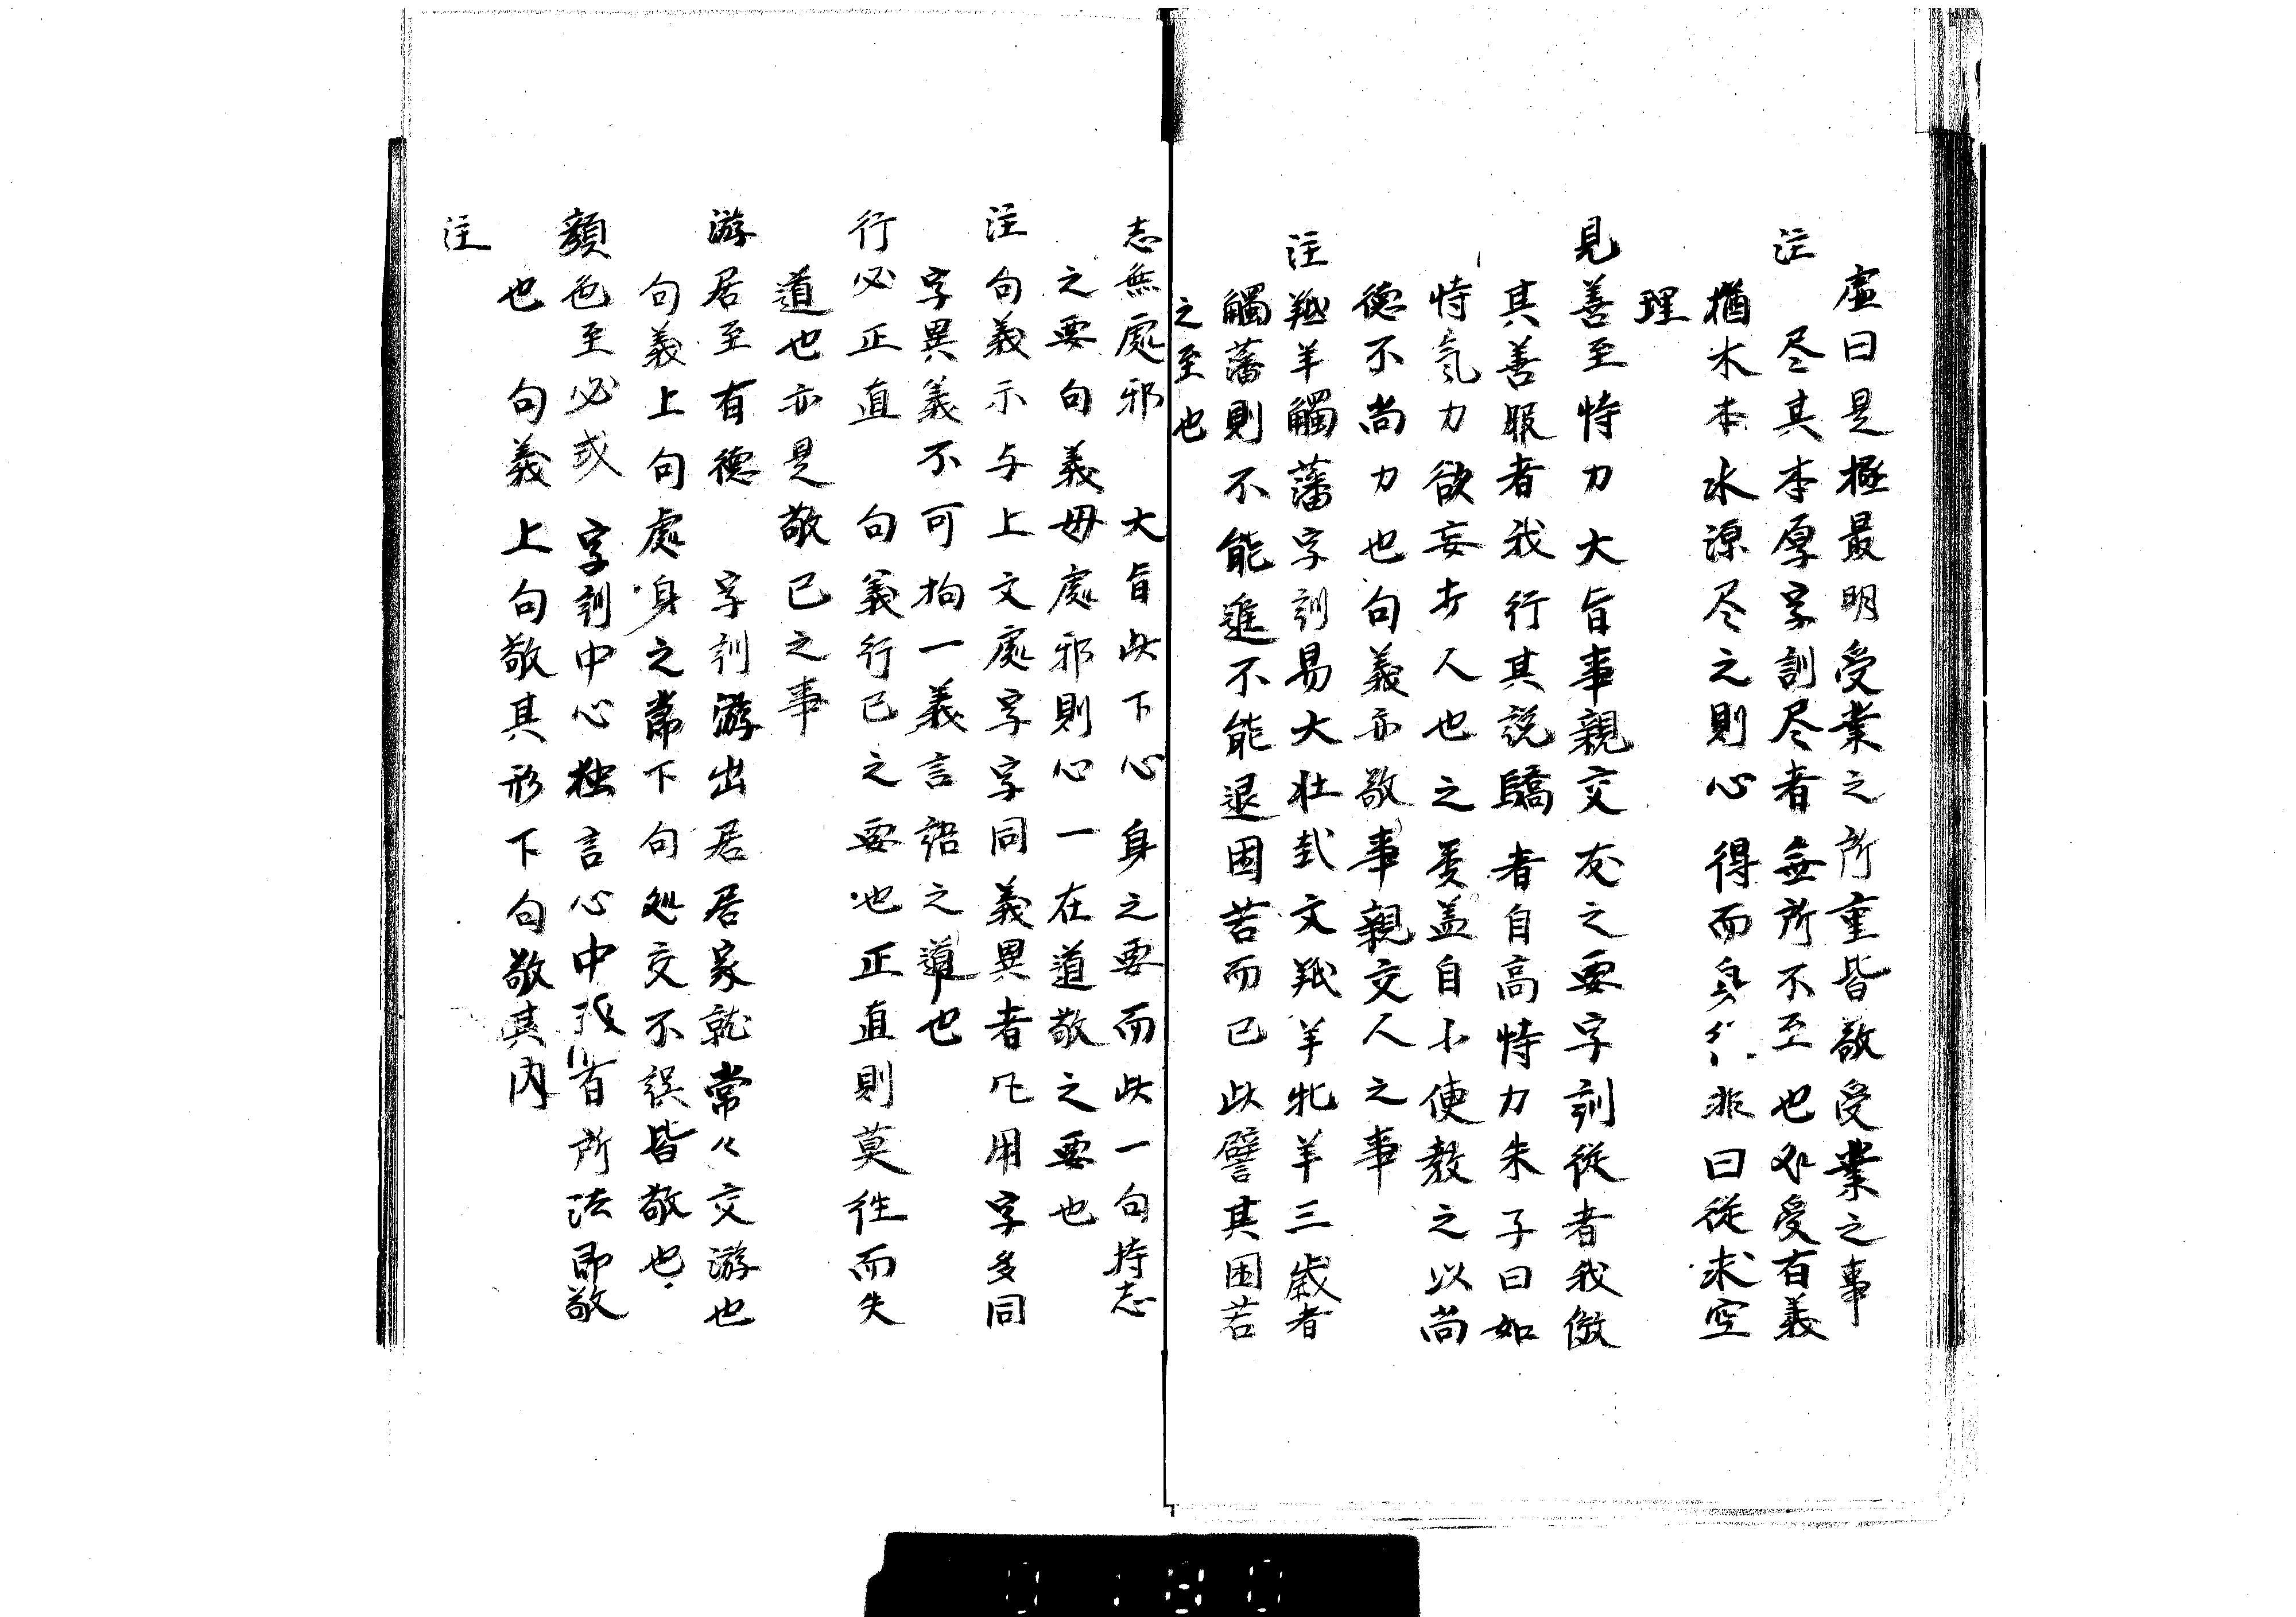 虚曰是極最明受業之所重皆敬受業之事
注　尽其本厚字訓尽者無所不至也受有義
猶木本水源尽之則心得而身非曰従求空
理
見善至恃力大旨事親交友之要字訓従者我倣
其善服者我行其説驕者自高恃力朱子曰如
恃気力欲妄人也之蓋自小使教之以尚
徳不尚力也句義亦敬事親交人之事
注　羝羊觸藩字訓易大壮卦文羝羊牝羊三歳者
觸藩則不能進不能退困苦而已此譬其困苦
之至也
志無處邪　大旨此下心身之要而此一句持志
之要句義毋處邪則心一在道敬之要也
注　句義示与上文處字字同義異者凡用字多同
字異義不可拘一義言語之道也
行必正直　句義行已之要也正直則莫往而失
道也亦是敬已之事
游居至有徳　字訓游出居居家就常々交游也
句義上句處身之常下句処交不誤皆敬也
顔色至必或　字訓中心独言心中首所法即敬
也　句義上句敬其形下句敬其内
注
0180